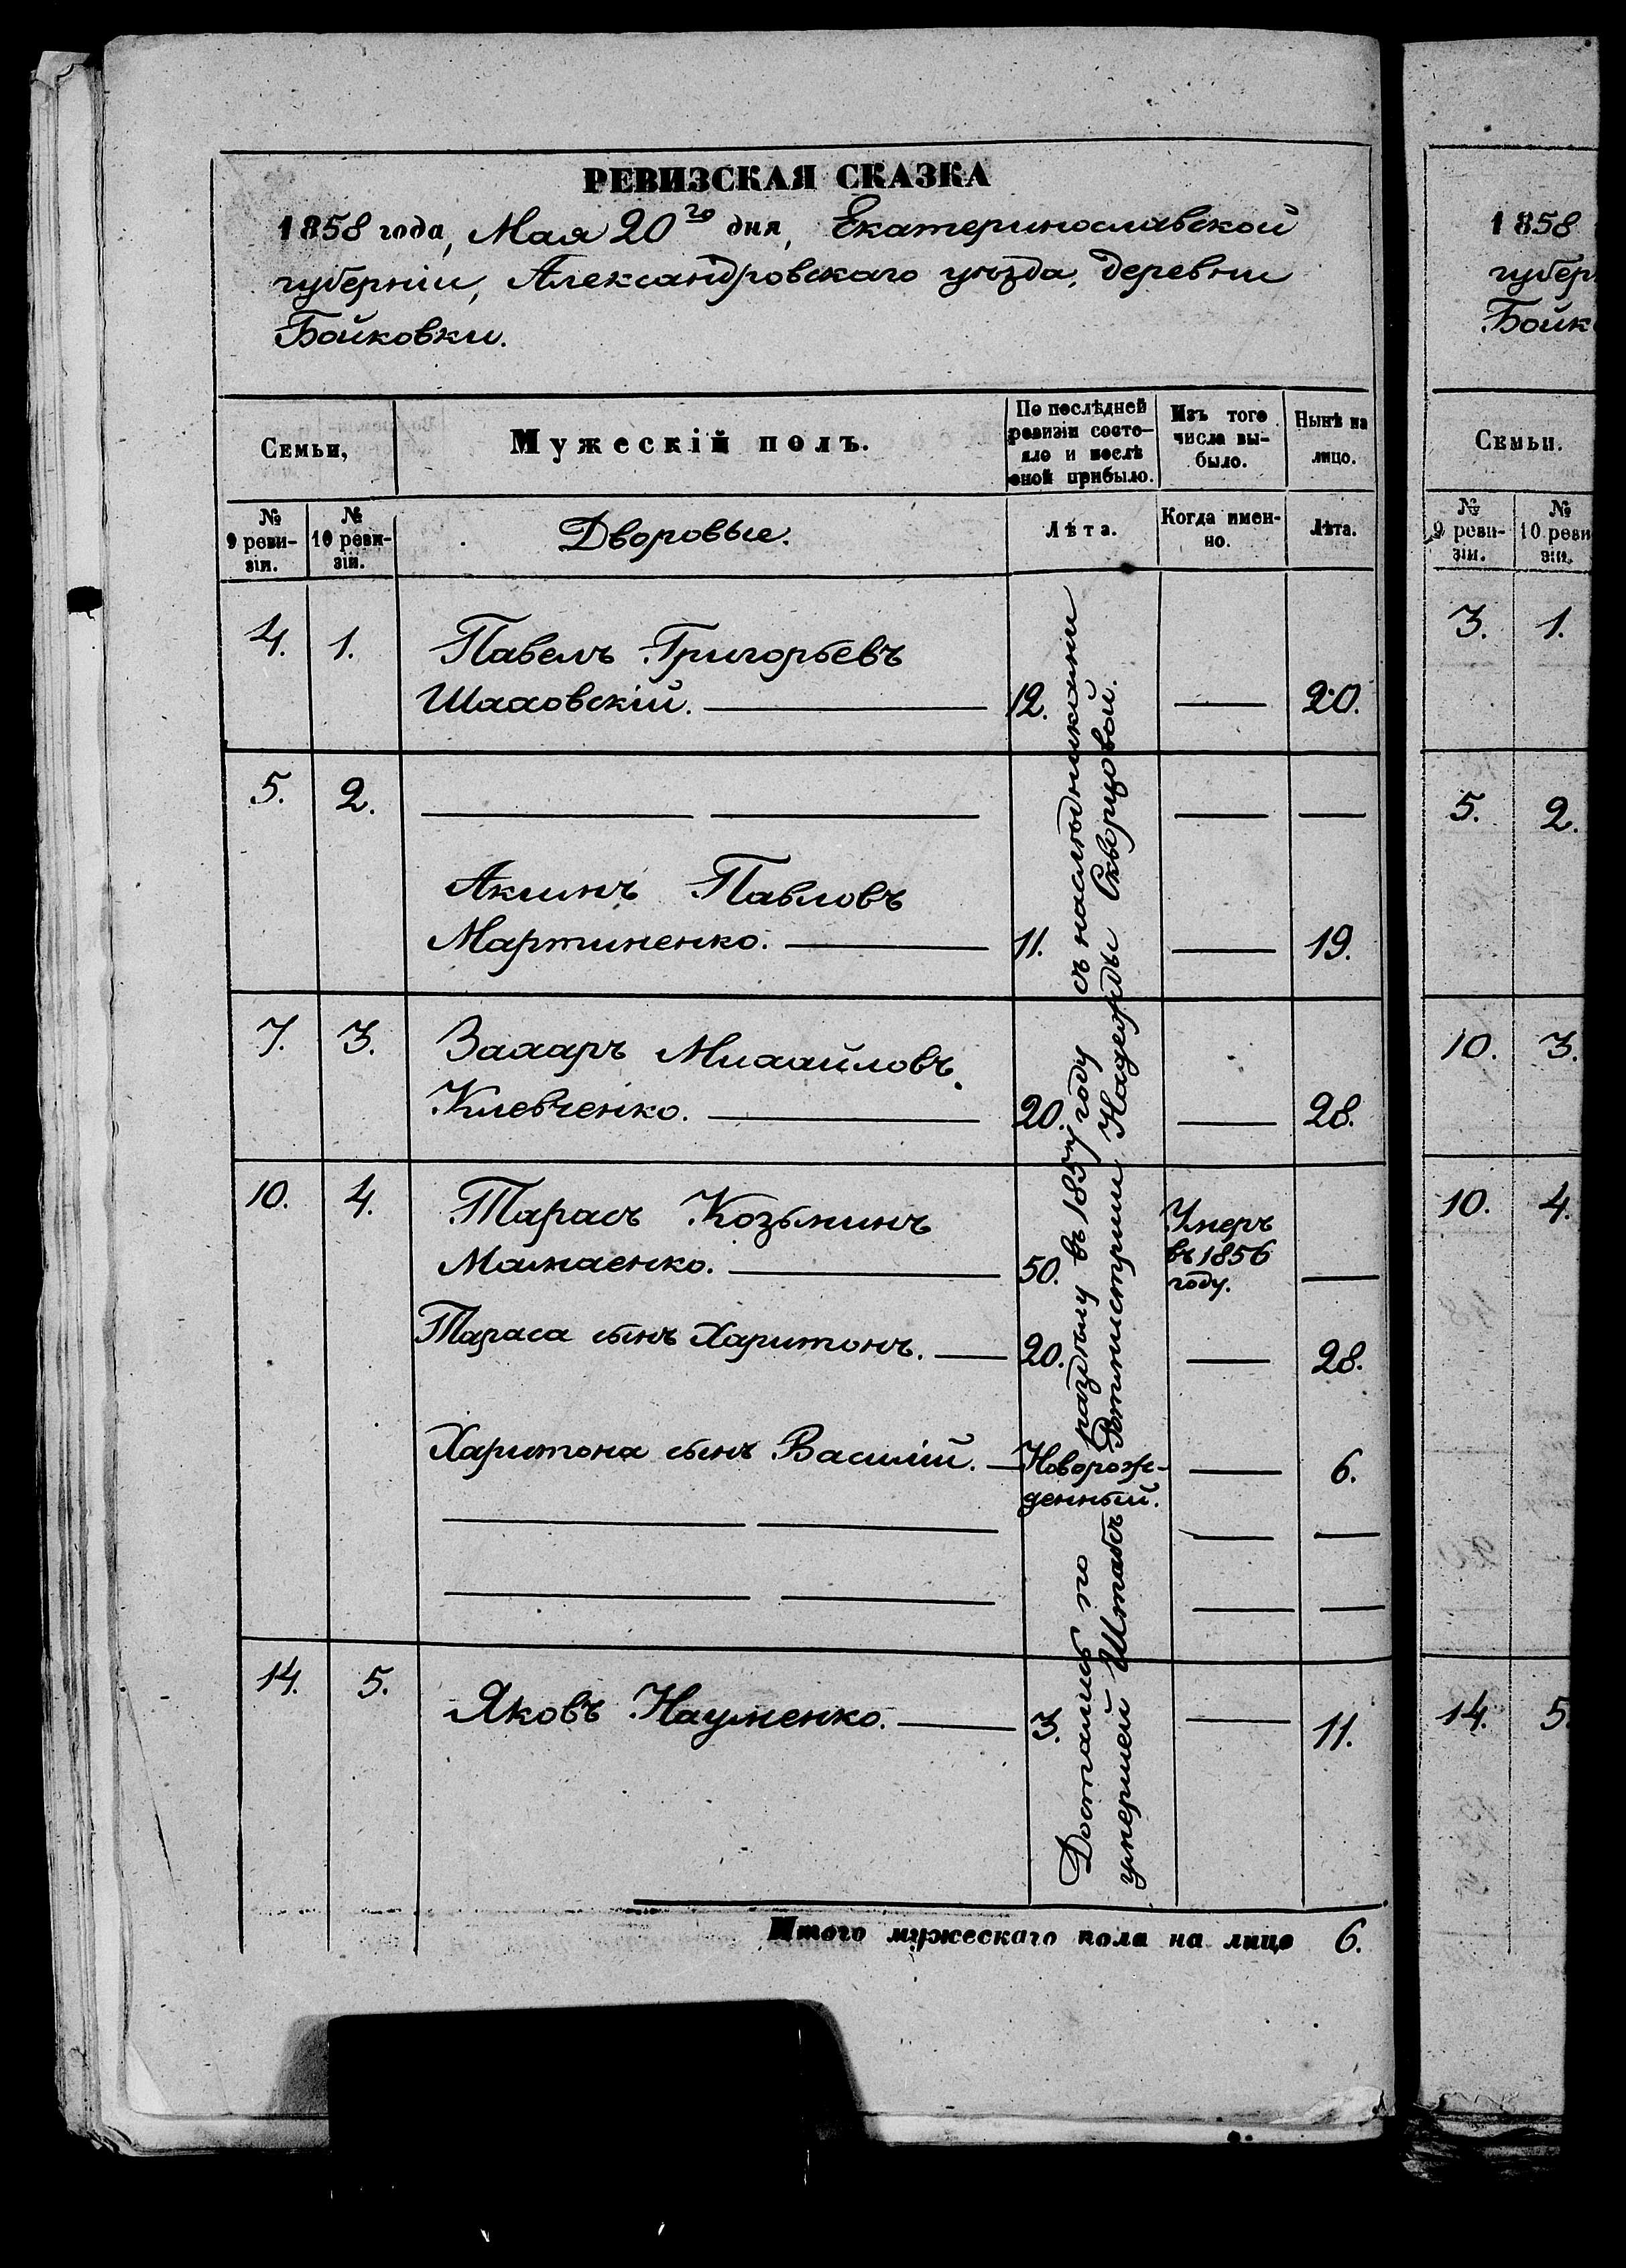 РЕВИЗСКАЯ СКАЗКА
1858 года, Мая 20го дня, Екатеринославской
губерніи, Александровскаго уѣзда, деревни
Бойковки.
Семьи,
Мужескій полъ.
По послѣдней ревизіи состо-
яло и послѣ
оной прибыло.
Изъ того
числа вы-
было.
Нынѣ на
лицо.
№
9 реви-
зіи.
№
10 реви-
зіи.
Дворовые.
Лѣта.
Когда имен-
но.
Лѣта.
4. 1. Павелъ Григорьевъ
Шаховскій. 12. — 20.
5. 2. — — — —
Акимъ Павловъ
Мартиненко. 11. — 19.
7. 3. Захаръ Михайловъ
Клевченко. 20. — 28.
10. 4. Тарасъ Козьминъ
Мамаенко. 50. Умеръ
въ 1856
году. —
Тараса сынъ Харитонъ. 20. — 28.
Харитона сынъ Василій. — Новорож-
денный. — 6.
— — — —
— — — —
14. 5. Яковъ Науменко. 3. — 11.
Достались по раздѣлу въ 1857 году съ наслѣдниками
умершей Штабсъ Ротмистрши Надежды Скворцовой.
Итого мужескаго пола на лицо 6.
1858
губер
Бойк
Семьи.
№
9 реви-
зіи.
№
10 реви
зіи.
3. 1.
5. 2.
10. 3.
10. 4.
14. 5